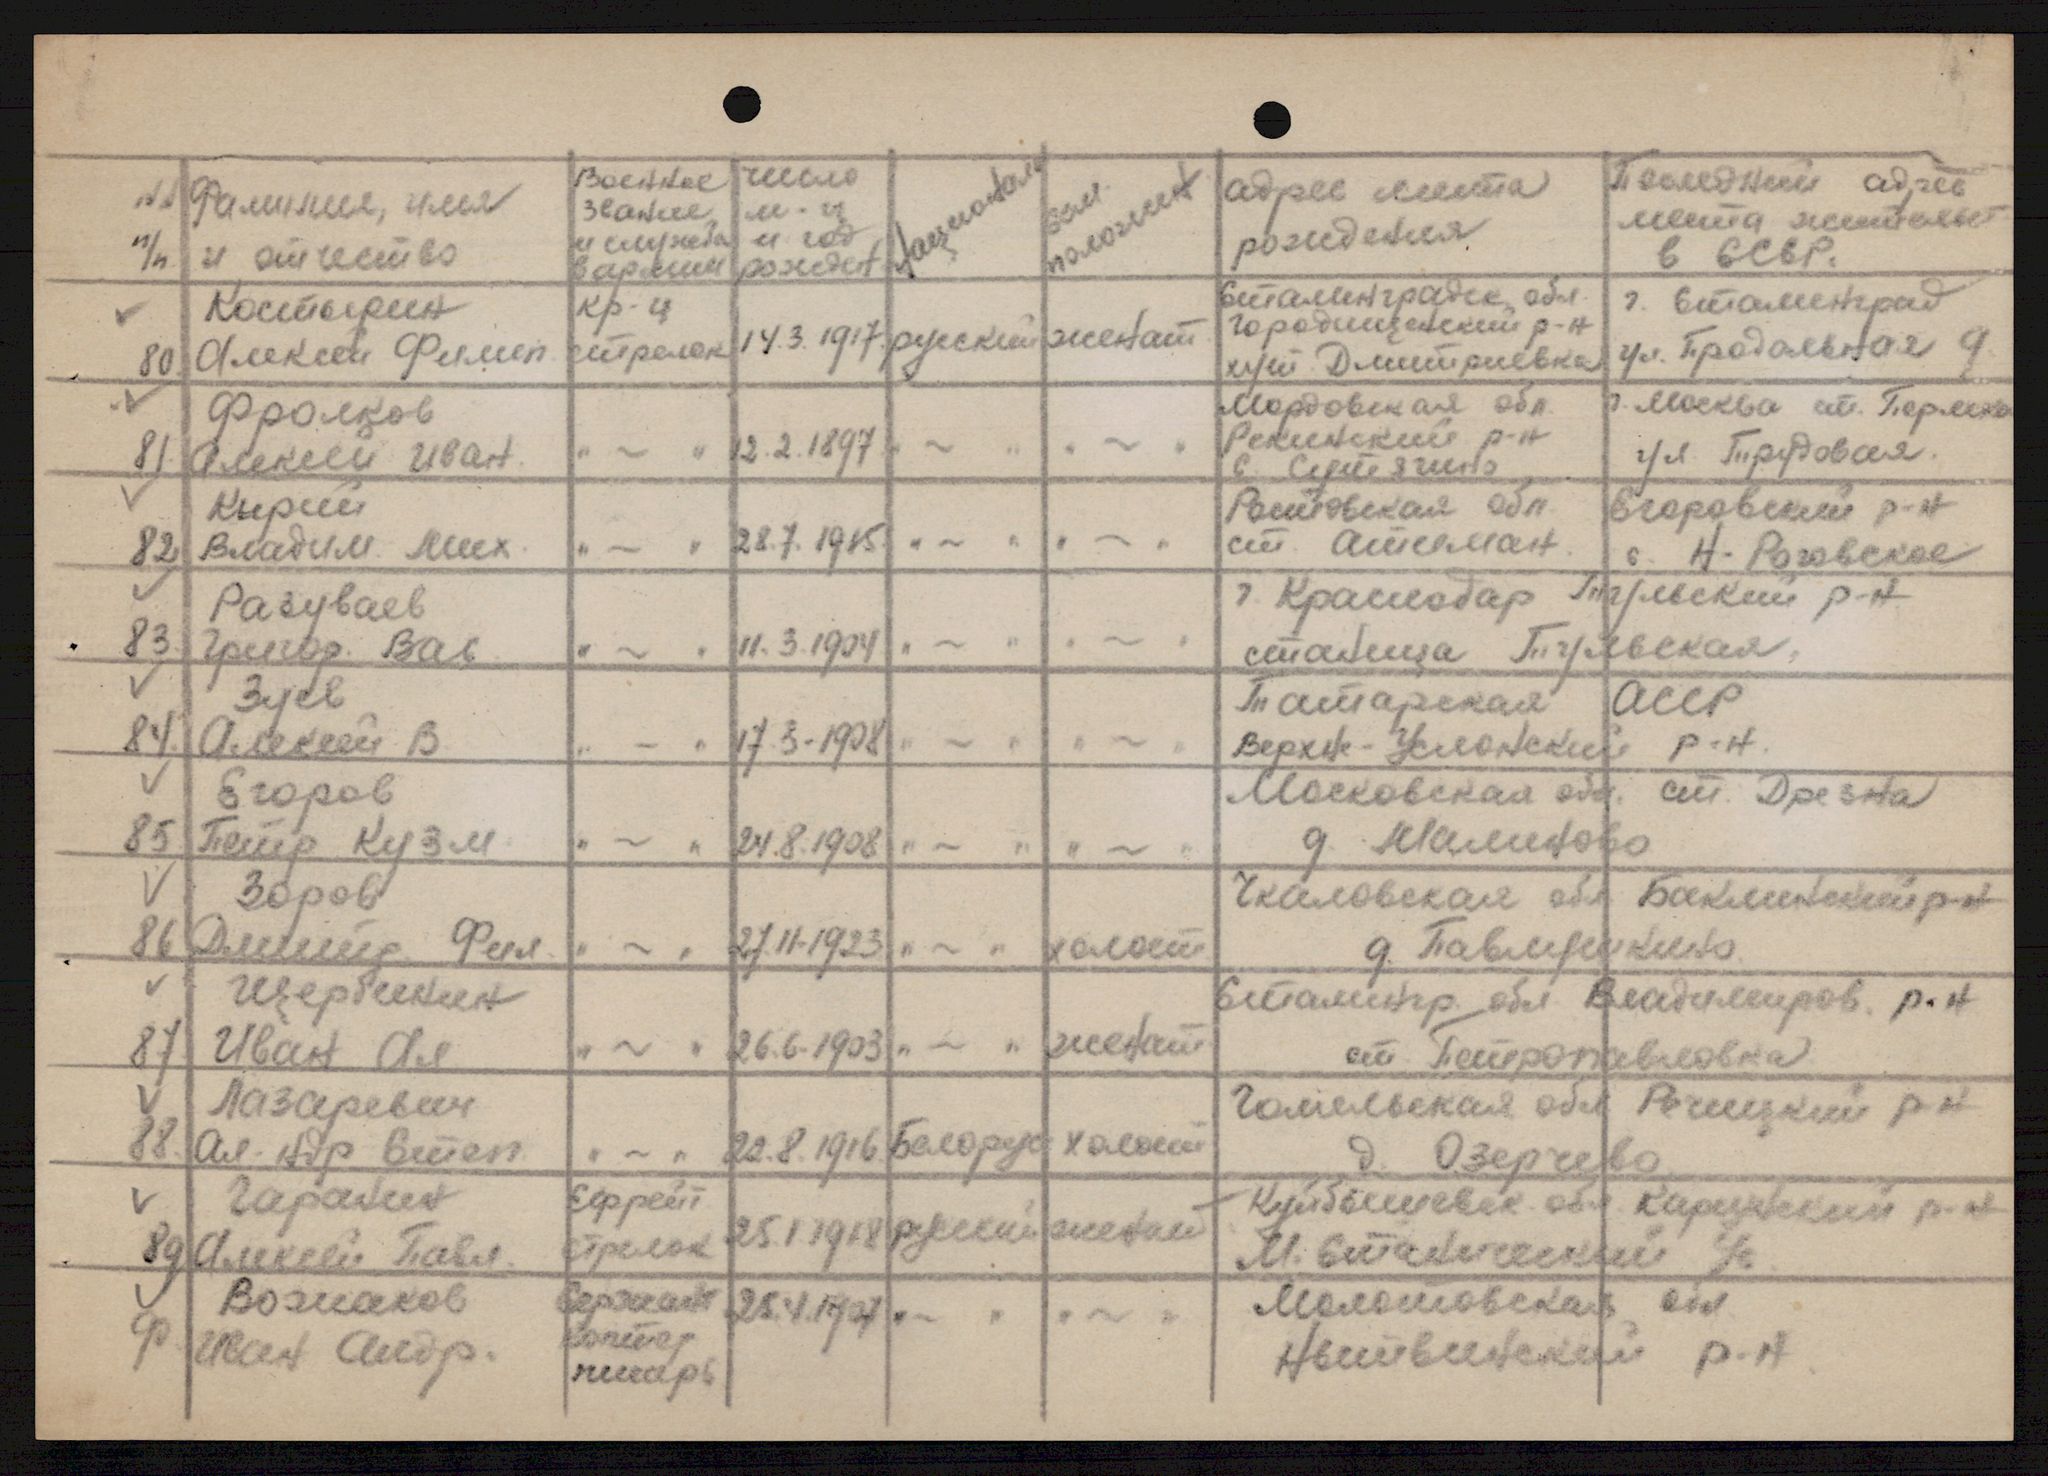 №№ п/п Фамилия, имя и отчество Военное звание и служба в армии число м-ц и год рожден национальн сем. положен адрес места рождения Последний адрес места жительст в СССР.
Костырин кр-ц Сталинградск. обл. г. Сталинград
80. Алексей Филип. стрелок 14.3.1917. русский женат Городищенский р-н
хут. Дмитриевка ул. Продольная 9.
Фролков Мордовская обл. г. Москва ст. Перлов
81. Алексей Иван. " ~ " 12.2.1897 " ~ " " ~ " р-н ул. Трудовая.
с. Сутягино
Кырий Ростовская обл. Егоровский р-н
82 Владим. Мих. " ~ " 28.7.1915. " ~ " " ~ " ст. Атаман. с. Н-Роговское
Разуваев г. Краснодар Тульский р-н
83. Григор. Вас. " ~ " 11.3.1904 " ~ " " ~ " станица Тульская,
Зуев Татарская АССР
84. Алексей В. " ~ " 17.3-1908 " ~ " " ~ " Верхн-Услонский р-н.
Егоров Московская обл. ст. Дрезна
85 Петр Кузм. " ~ " 24.8.1908 " ~ " " ~ " д. Малиново
Зоров Чкаловская обл Баклинский р-н
86 Дмитр. Фил. " ~ " 27.11-1923 " ~ " холост д. Павлушкино.
Щербинин Сталингр. обл Владимиров. р-н
87. Иван Ал " ~ " 26.6-1903 " ~ " женат ст. Петропавловка
Лазаревич Гомельская обл Речицкий р-н
88. Ал-ндр Степ. " ~ " 22.8.1916. Белорус холост д. Озерчево.
Гаранин Ефрейт Куйбышевск. обл. р-н
89 Алексей Павл. стрелок 25.1.1918 русский женат М.
Вожаков Сержант 25.4.1904 " ~ " " ~ " Молотовская обл
Иван Андр. писарь Нытвинский р-н.